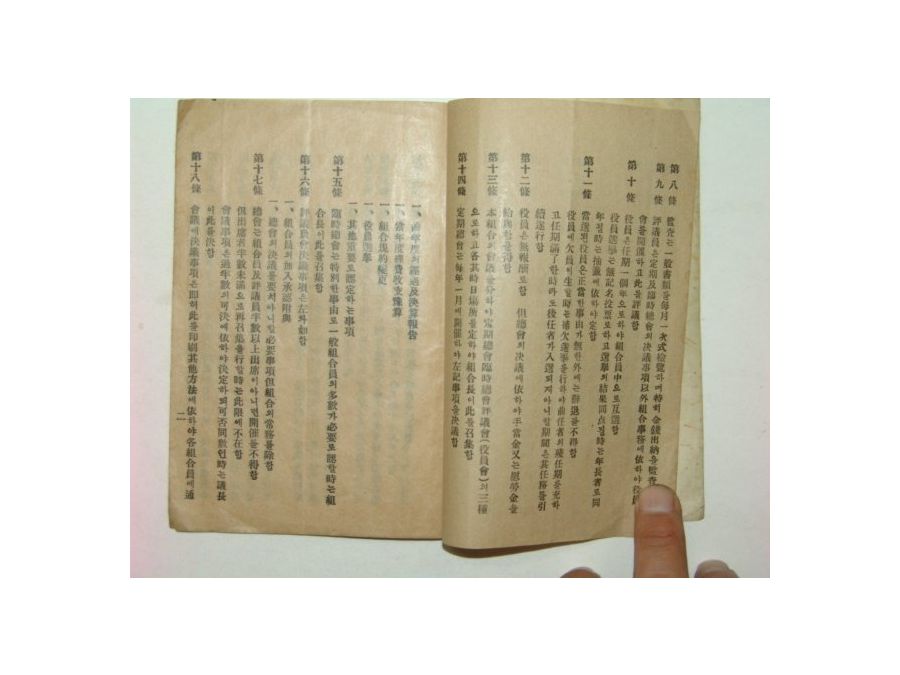 第八條 監査는一般書類를每月一次式檢覽하며特히金錢出納을監査
第九條 評議員은定期及臨時總會의決議事項以外組合事務에依하야役員
會를開催하고此를評議함
第十條 役員은任期一個年으로하야組合員中으로互選함
役員選擧는無記名投票로하고選擧의結果同点될時는年長者로同
年될時는抽籤에依하야定함
第十一條 當選된役員은正當한事由가無한外에는辭退를不得함
役員에欠員이生할時는補欠選擧를行하야前任者의殘任期를充하
고任期滿了한時라도後任者가入選되지아니할期間은其任務를引
續遂行함
第十二條 役員은無報酬로함 但總會의決議에依하야手當金又는慰勞金을
給與함을得함
第十三條 本組合의會議를分하야定期總會臨時總會評議會(役員會)의三種
으로하고各其時日場所를定하야組合長이此를召集함
第十四條 定期總會는每年一月에開催하야左記事項을決議함
一、前年度의經過及決算報告
一、當年度經費收支豫算
一、組合規約變更
一、役員選擧
一、其他重要로認定하는事項
第十五條 臨時總會는特別한事由로一般組合員의多數가必要로認할時는組
合長이此를召集함
第十六條 評議員會決議事項은左와如함
一、組合員의加入承認附與
一、總會의決議를要치아니할必要事項但組合의常務를除함
第十七條 總會는組合員及評議員半數以上出席이아니면開催를不得함
但出席者半數未滿으로再召集을行할時는此限에不在함
會議事項은過半數의可決에依하야決定하되可否同數인時는議長
이此를決함
第十八條 會議에決議事項은即히此를印刷其他方法에依하야各組合員에通
二